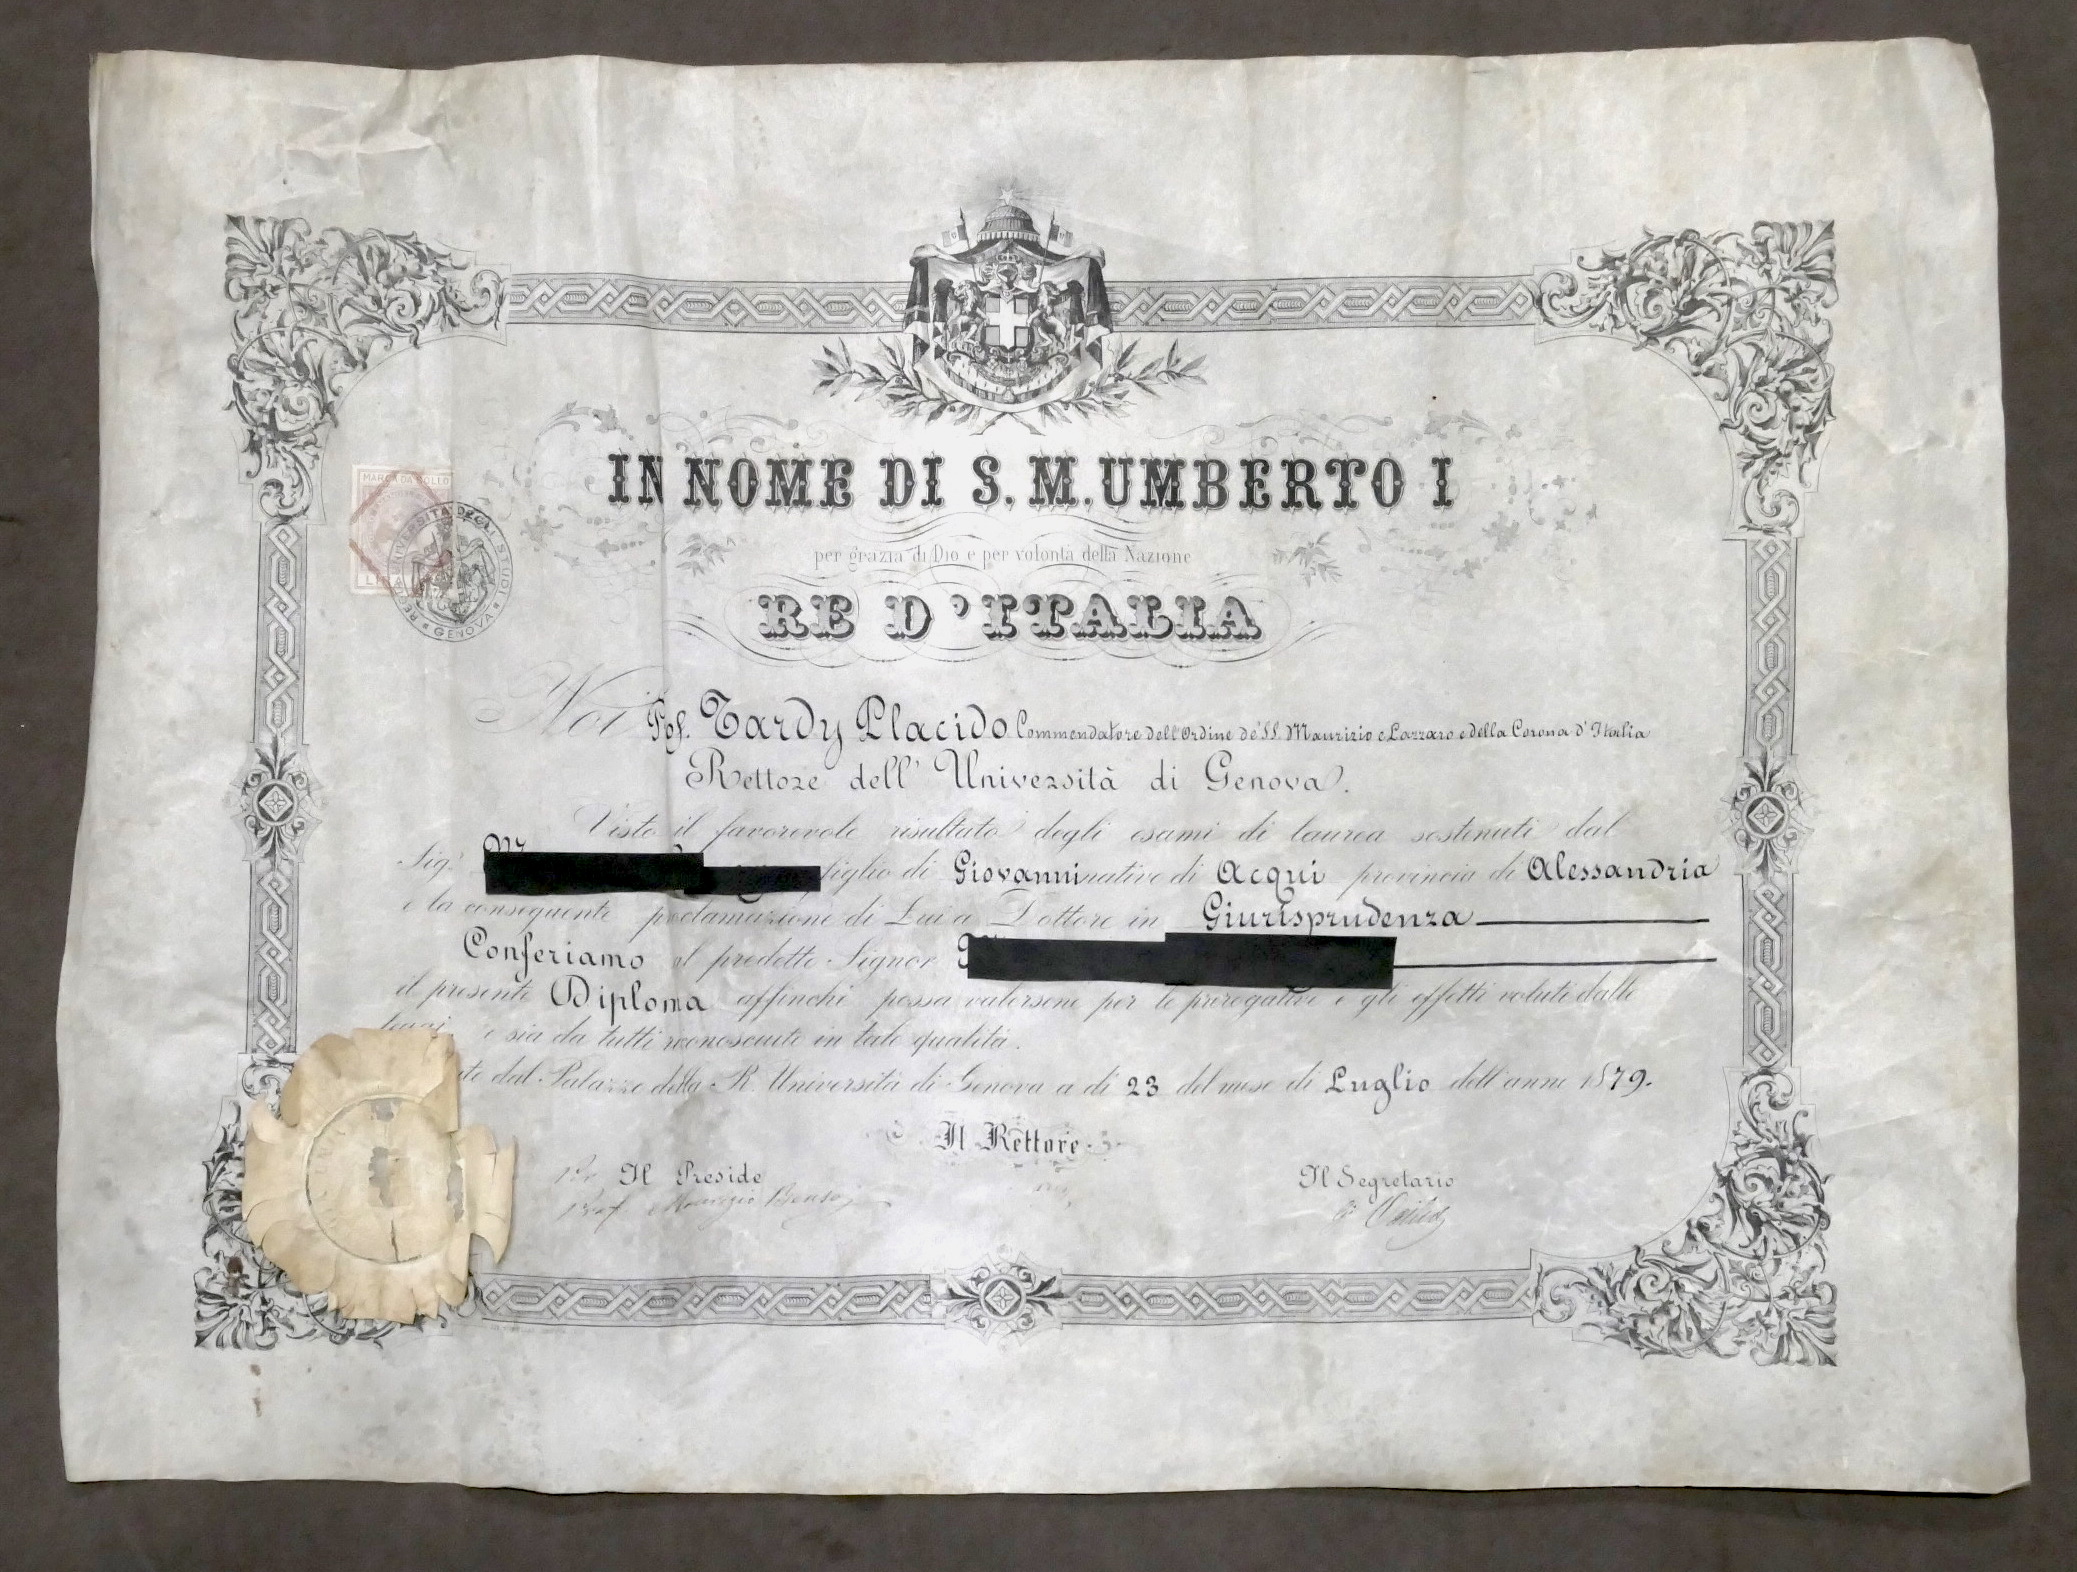 IN NOME DI S. M. UMBERTO I
per grazia di Dio e per volontà della Nazione
RE D'ITALIA
MARCA DA BOLLO
LIRA
REGIA UNIVERSITÀ DEGLI STUDI
GENOVA
Noi Tardy Placido Commendatore dell'Ordine de' SS. Maurizio e Lazzaro e della Corona d'Italia
Rettore dell' Università di Genova.
Visto il favorevole risultato degli esami di laurea sostenuti dal
Sig. figlio di Giovanni nativo di Acqui provincia di Alessandria
e la conseguente proclamazione di Lui a Dottore in Giurisprudenza
Conferiamo al predetto Signor
il presente Diploma affinchè possa valersene per le prerogative e gli effetti voluti dalle
leggi, e sia da tutti riconosciuto in tale qualità.
dal Palazzo della R. Università di Genova a dì 23 del mese di Luglio dell'anno 1879.
Il Rettore
Il Preside
Il Segretario
Prof. Maurizio